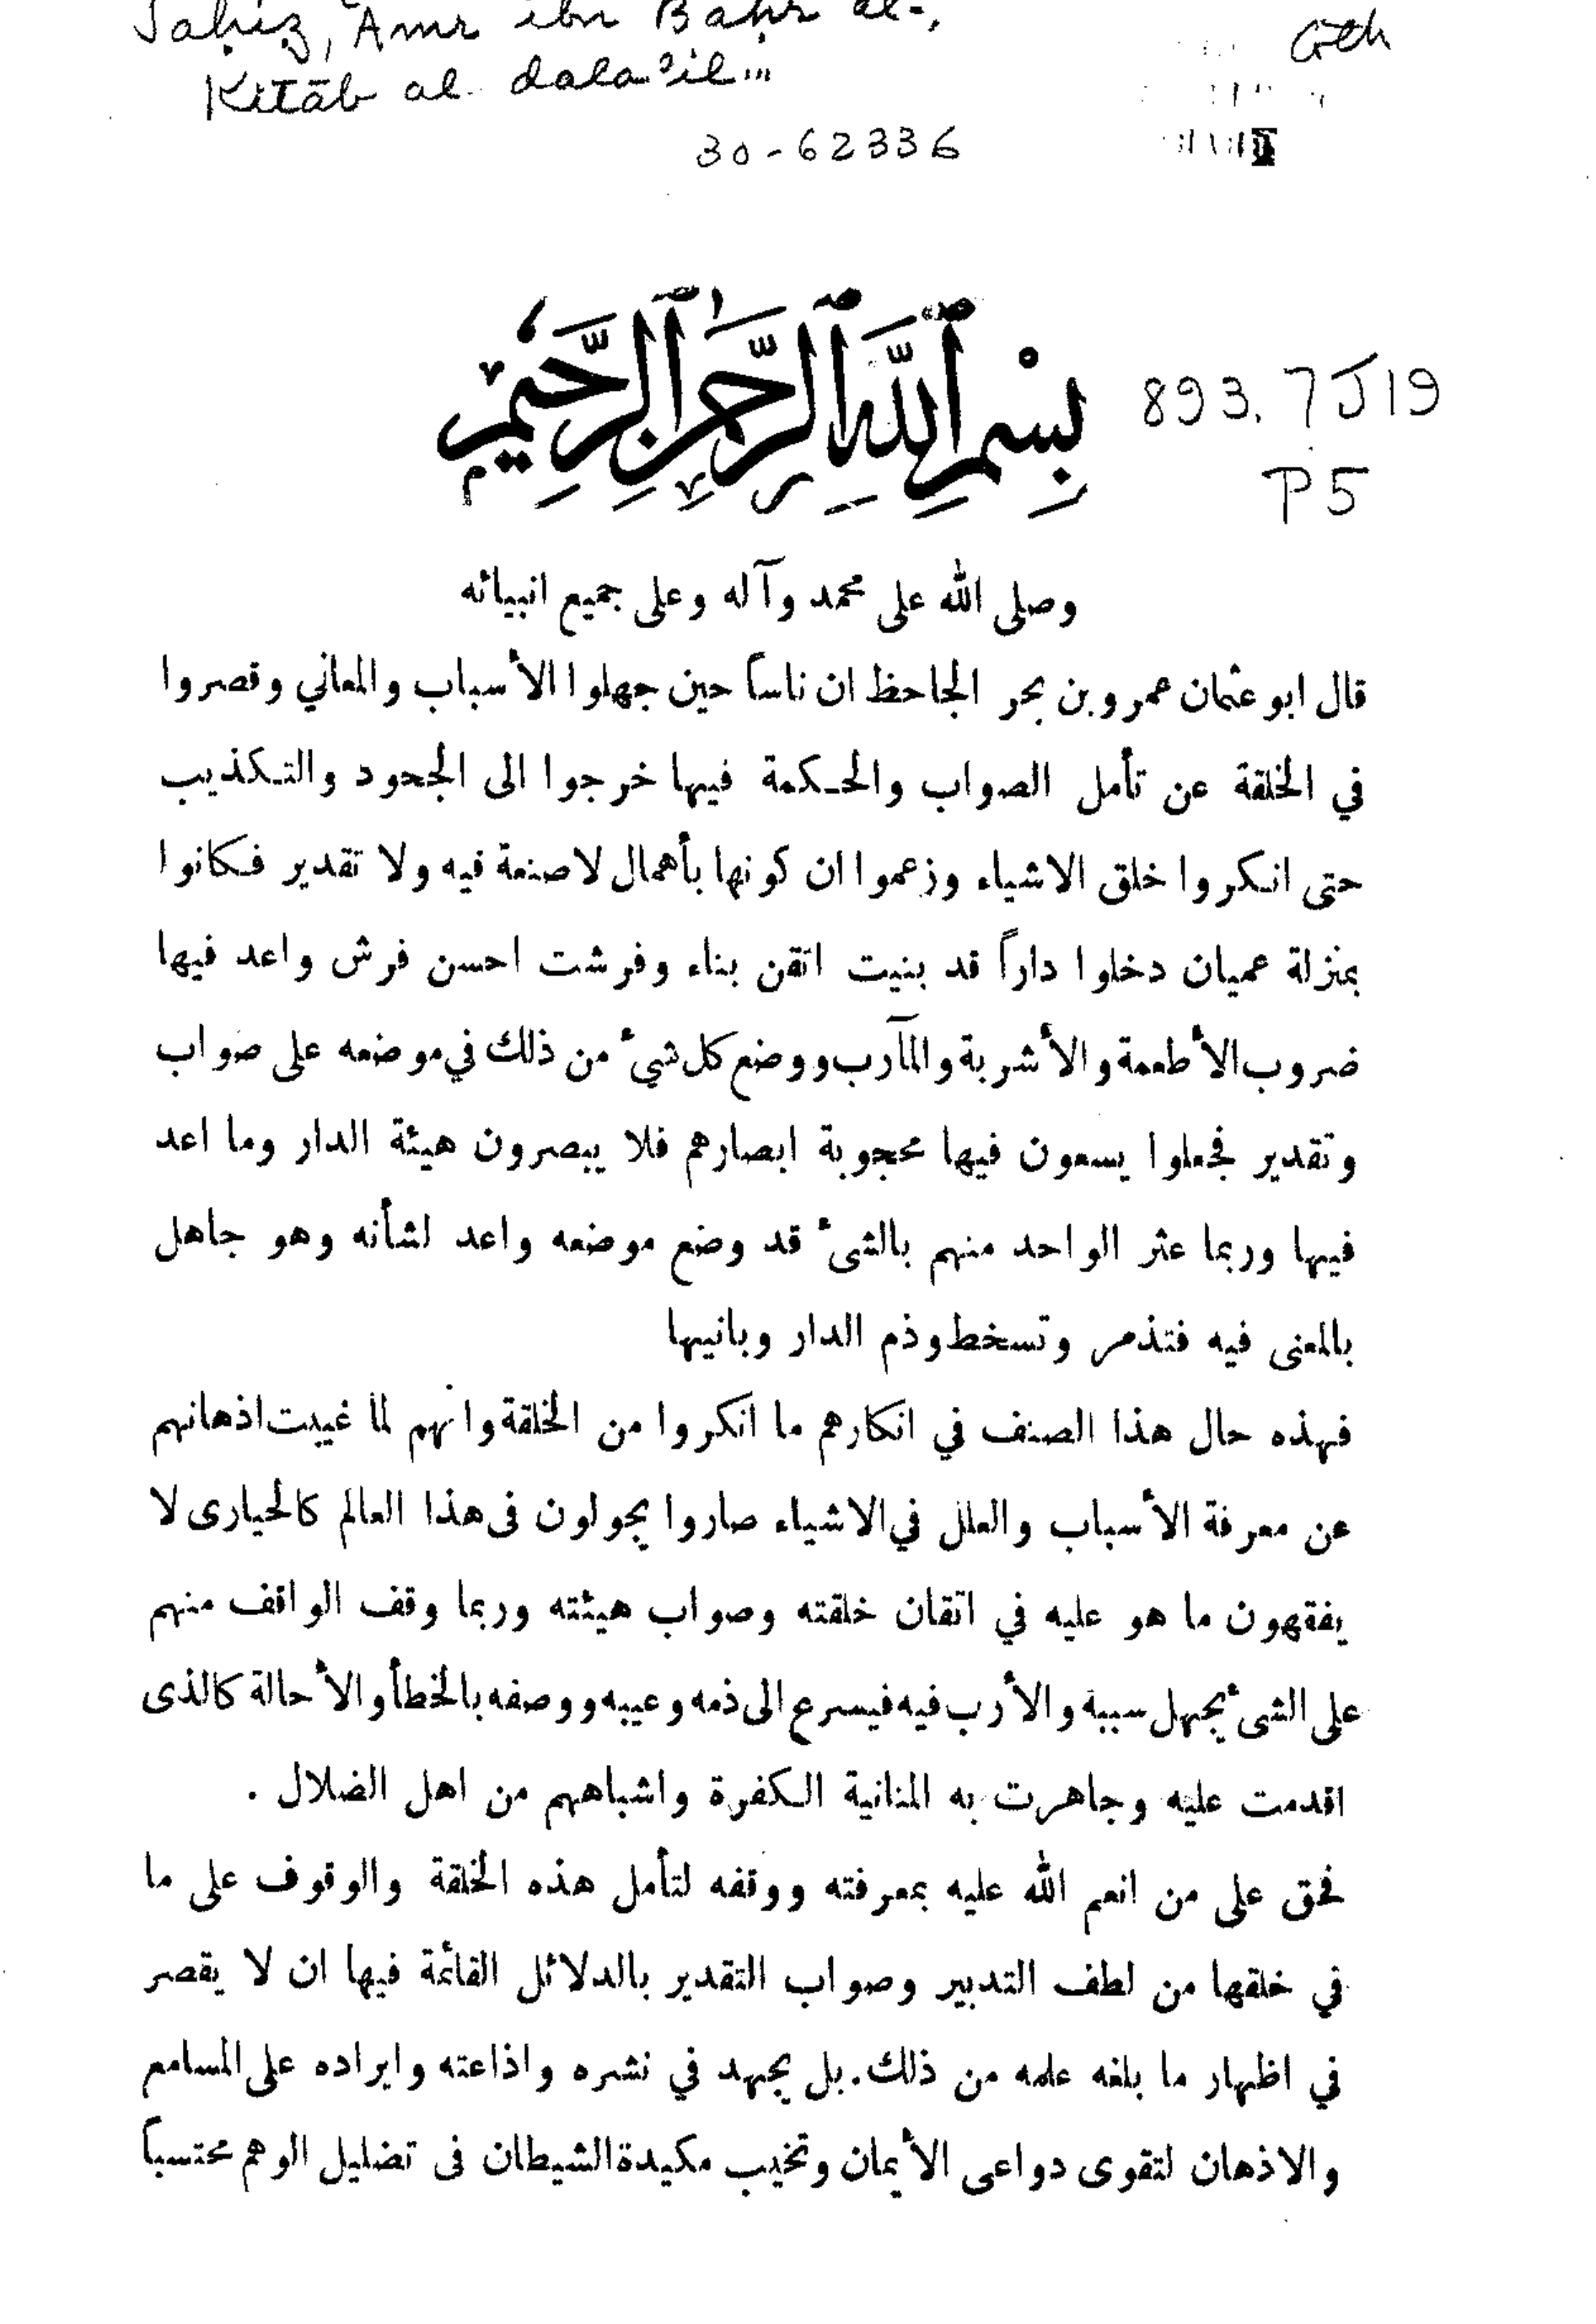 Jaḥiẓ, Amr ibn Baḥr al-,
Kitāb al dala'il...
30-62336
بِسْمِ ٱللَّهِ ٱلرَّحْمَٰنِ ٱلرَّحِيمِ
893.7J19
P5
وصلى الله على محمد وآله وعلى جميع انبيائه
قال ابو عثمان عمرو بن بحر الجاحظ ان ناساً حين جهلوا الأسباب والمعاني وقصروا
في الخلقة عن تأمل الصواب والحكمة فيها خرجوا الى الجحود والتكذيب
حتى انكروا خلق الاشياء وزعموا ان كونها بأهمال لا صنعة فيه ولا تقدير فكانوا
بمنزلة عميان دخلوا داراً قد بنيت اتقن بناء وفرشت احسن فرش واعد فيها
ضروب الأطعمة والأشربة والمآرب ووضع كل شيء من ذلك في موضعه على صواب
وتقدير فجعلوا يسعون فيها محجوبة ابصارهم فلا يبصرون هيئة الدار وما اعد
فيها وربما عثر الواحد منهم بالشىء قد وضع موضعه واعد لشأنه وهو جاهل
بالمعنى فيه فتذمر وتسخط وذم الدار وبانيها
فهذه حال هذا الصنف في انكارهم ما انكروا من الخلقة وانهم لما غيبت اذهانهم
عن معرفة الأسباب والعلل في الاشياء صاروا يجولون فى هذا العالم كالحيارى لا
يفقهون ما هو عليه في اتقان خلقته وصواب هيئته وربما وقف الواقف منهم
على الشىء يجهل سببه والأرب فيه فيسرع الى ذمه وعيبه ووصفه بالخطأ والأحالة كالذى
اقدمت عليه وجاهرت به المنانية الكفرة واشباههم من اهل الضلال .
فحق على من انعم الله عليه بمعرفته ووقفه لتأمل هذه الخلقة والوقوف على ما
في خلقها من لطف التدبير وصواب التقدير بالدلائل القائمة فيها ان لا يقصر
في اظهار ما بلغه علمه من ذلك. بل يجهد في نشره واذاعته وايراده على المسامع
والاذهان لتقوى دواعى الأيمان وتخيب مكيدة الشيطان فى تضليل الوهم محتسباً